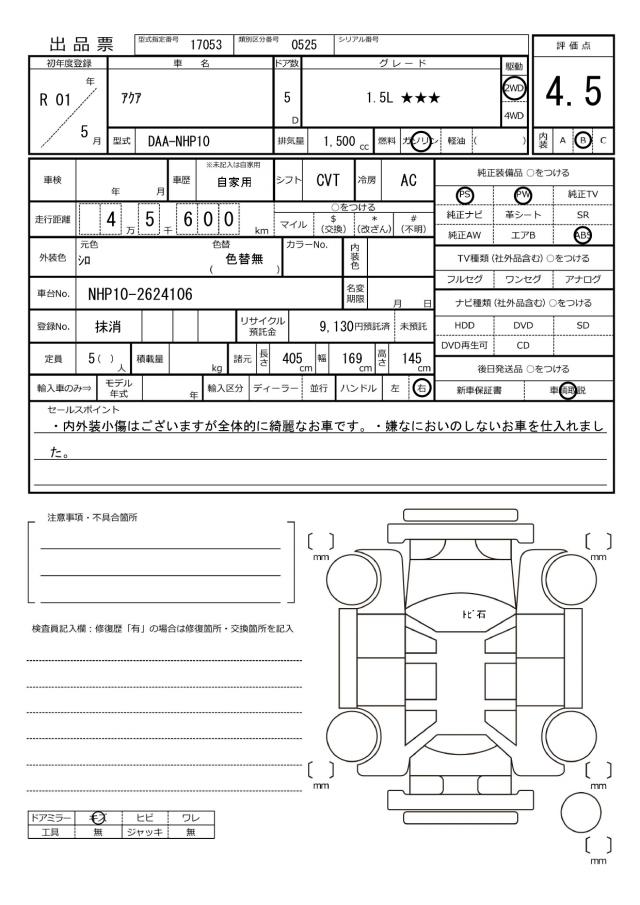 出品票 型式指定番号 17053 類別区分番号 0525 シリアル番号
評価点
初年度登録 車名 ドア数 グレード 駆動
R 01 年 ｱｸｱ 5 D 1.5L ★★★ 2WD 4.5
4WD
5 月 型式 DAA-NHP10 排気量 1,500 cc 燃料 ガソリン 軽油 ( ) 内装 A B C
車検 年 月 車歴 ※未記入は自家用 自家用 シフト CVT 冷房 AC
純正装備品 ○をつける
PS PW 純正TV
走行距離 4 万 5 千 6 0 0 km ○をつける
マイル $(交換) *(改ざん) #(不明)
純正ナビ 革シート SR
純正AW エアB ABS
外装色 元色 ｼﾛ 色替 ( 色替無 ) カラーNo. 内装色
TV種類(社外品含む)○をつける
フルセグ ワンセグ アナログ
車台No. NHP10-2624106 名変期限 月 日
ナビ種類(社外品含む)○をつける
登録No. 抹消 リサイクル預託金 9,130円預託済 未預託
HDD DVD SD
DVD再生可 CD
定員 5( ) 人 積載量 kg 諸元 長さ 405 cm 幅 169 cm 高さ 145 cm
後日発送品 ○をつける
輸入車のみ⇒ モデル年式 年 輸入区分 ディーラー 並行 ハンドル 左 右
新車保証書 車輌取説
セールスポイント
・内外装小傷はございますが全体的に綺麗なお車です。・嫌なにおいのしないお車を仕入れまし
た。
注意事項・不具合箇所
〔 〕 mm
〔 〕 mm
ﾄﾋﾞ石
検査員記入欄：修復歴「有」の場合は修復箇所・交換箇所を記入
〔 〕 mm
〔 〕 mm
ドアミラー キズ ヒビ ワレ
工具 無 ジャッキ 無
〔 〕 mm